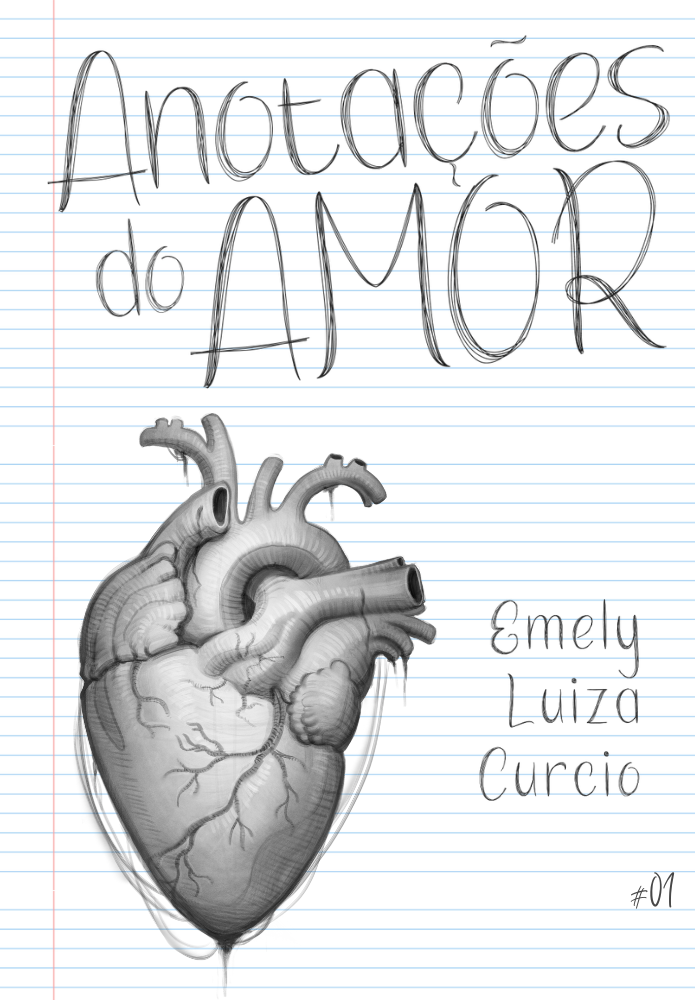 Anotações
do AMOR
Emely
Luiza
Curcio
#01